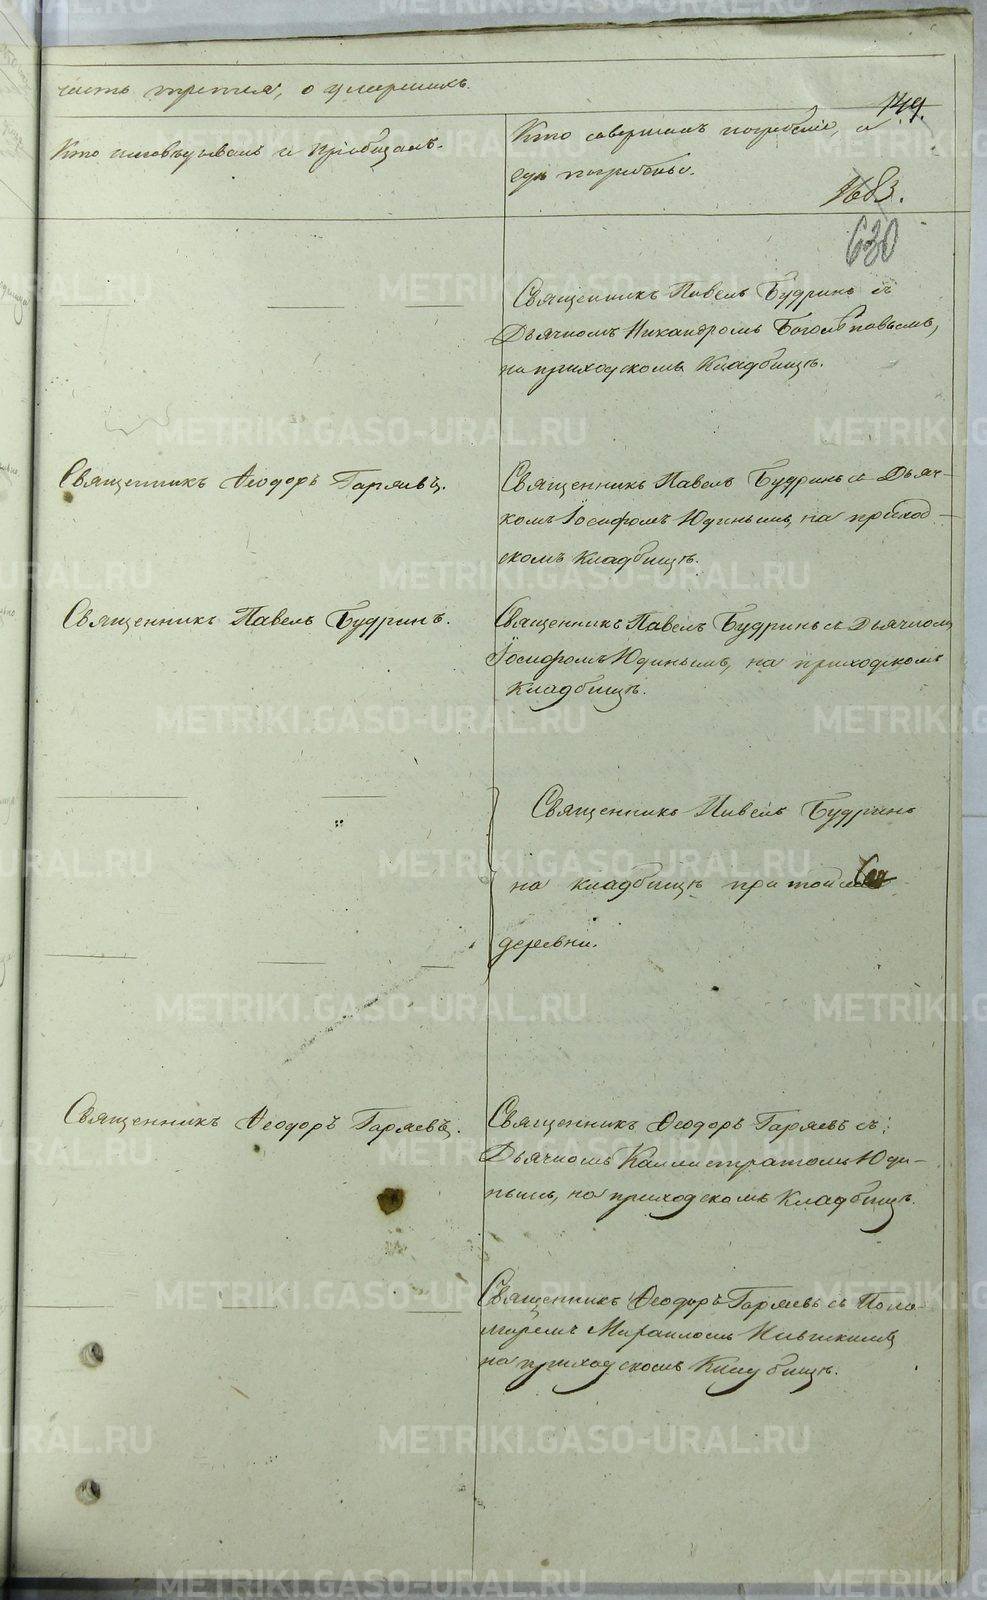 часть третья, о умершихъ.
149.
Кто исповѣдывалъ и пріобщалъ.
Кто совершалъ погребеніе, и
гдѣ погребены.
1683.
630
Священникъ Павелъ Будринъ съ
Дьячкомъ Никандромъ Боголѣповымъ,
на приходскомъ Кладбищѣ.
Священникъ Ѳеодоръ Гаряевъ.
Священникъ Павелъ Будринъ съ Дьяч-
комъ Іосифомъ Юдинымъ, на приход-
скомъ кладбищѣ.
Священникъ Павелъ Будринъ.
Священникъ Павелъ Будринъ съ Дьячкомъ
Іосифомъ Юдинымъ, на приходскомъ
кладбищѣ.
Священникъ Павелъ Будринъ
на кладбищѣ при той
деревни.
Священникъ Ѳеодоръ Гаряевъ.
Священникъ Ѳеодоръ Гаряевъ съ:
Дьячкомъ Каллистратомъ Юди-
нымъ, на приходскомъ Кладбищѣ.
Священникъ Ѳеодоръ Гаряевъ съ Поно-
маремъ
на приходскомъ Кладбищѣ.
METRIKI.GASO-URAL.RU